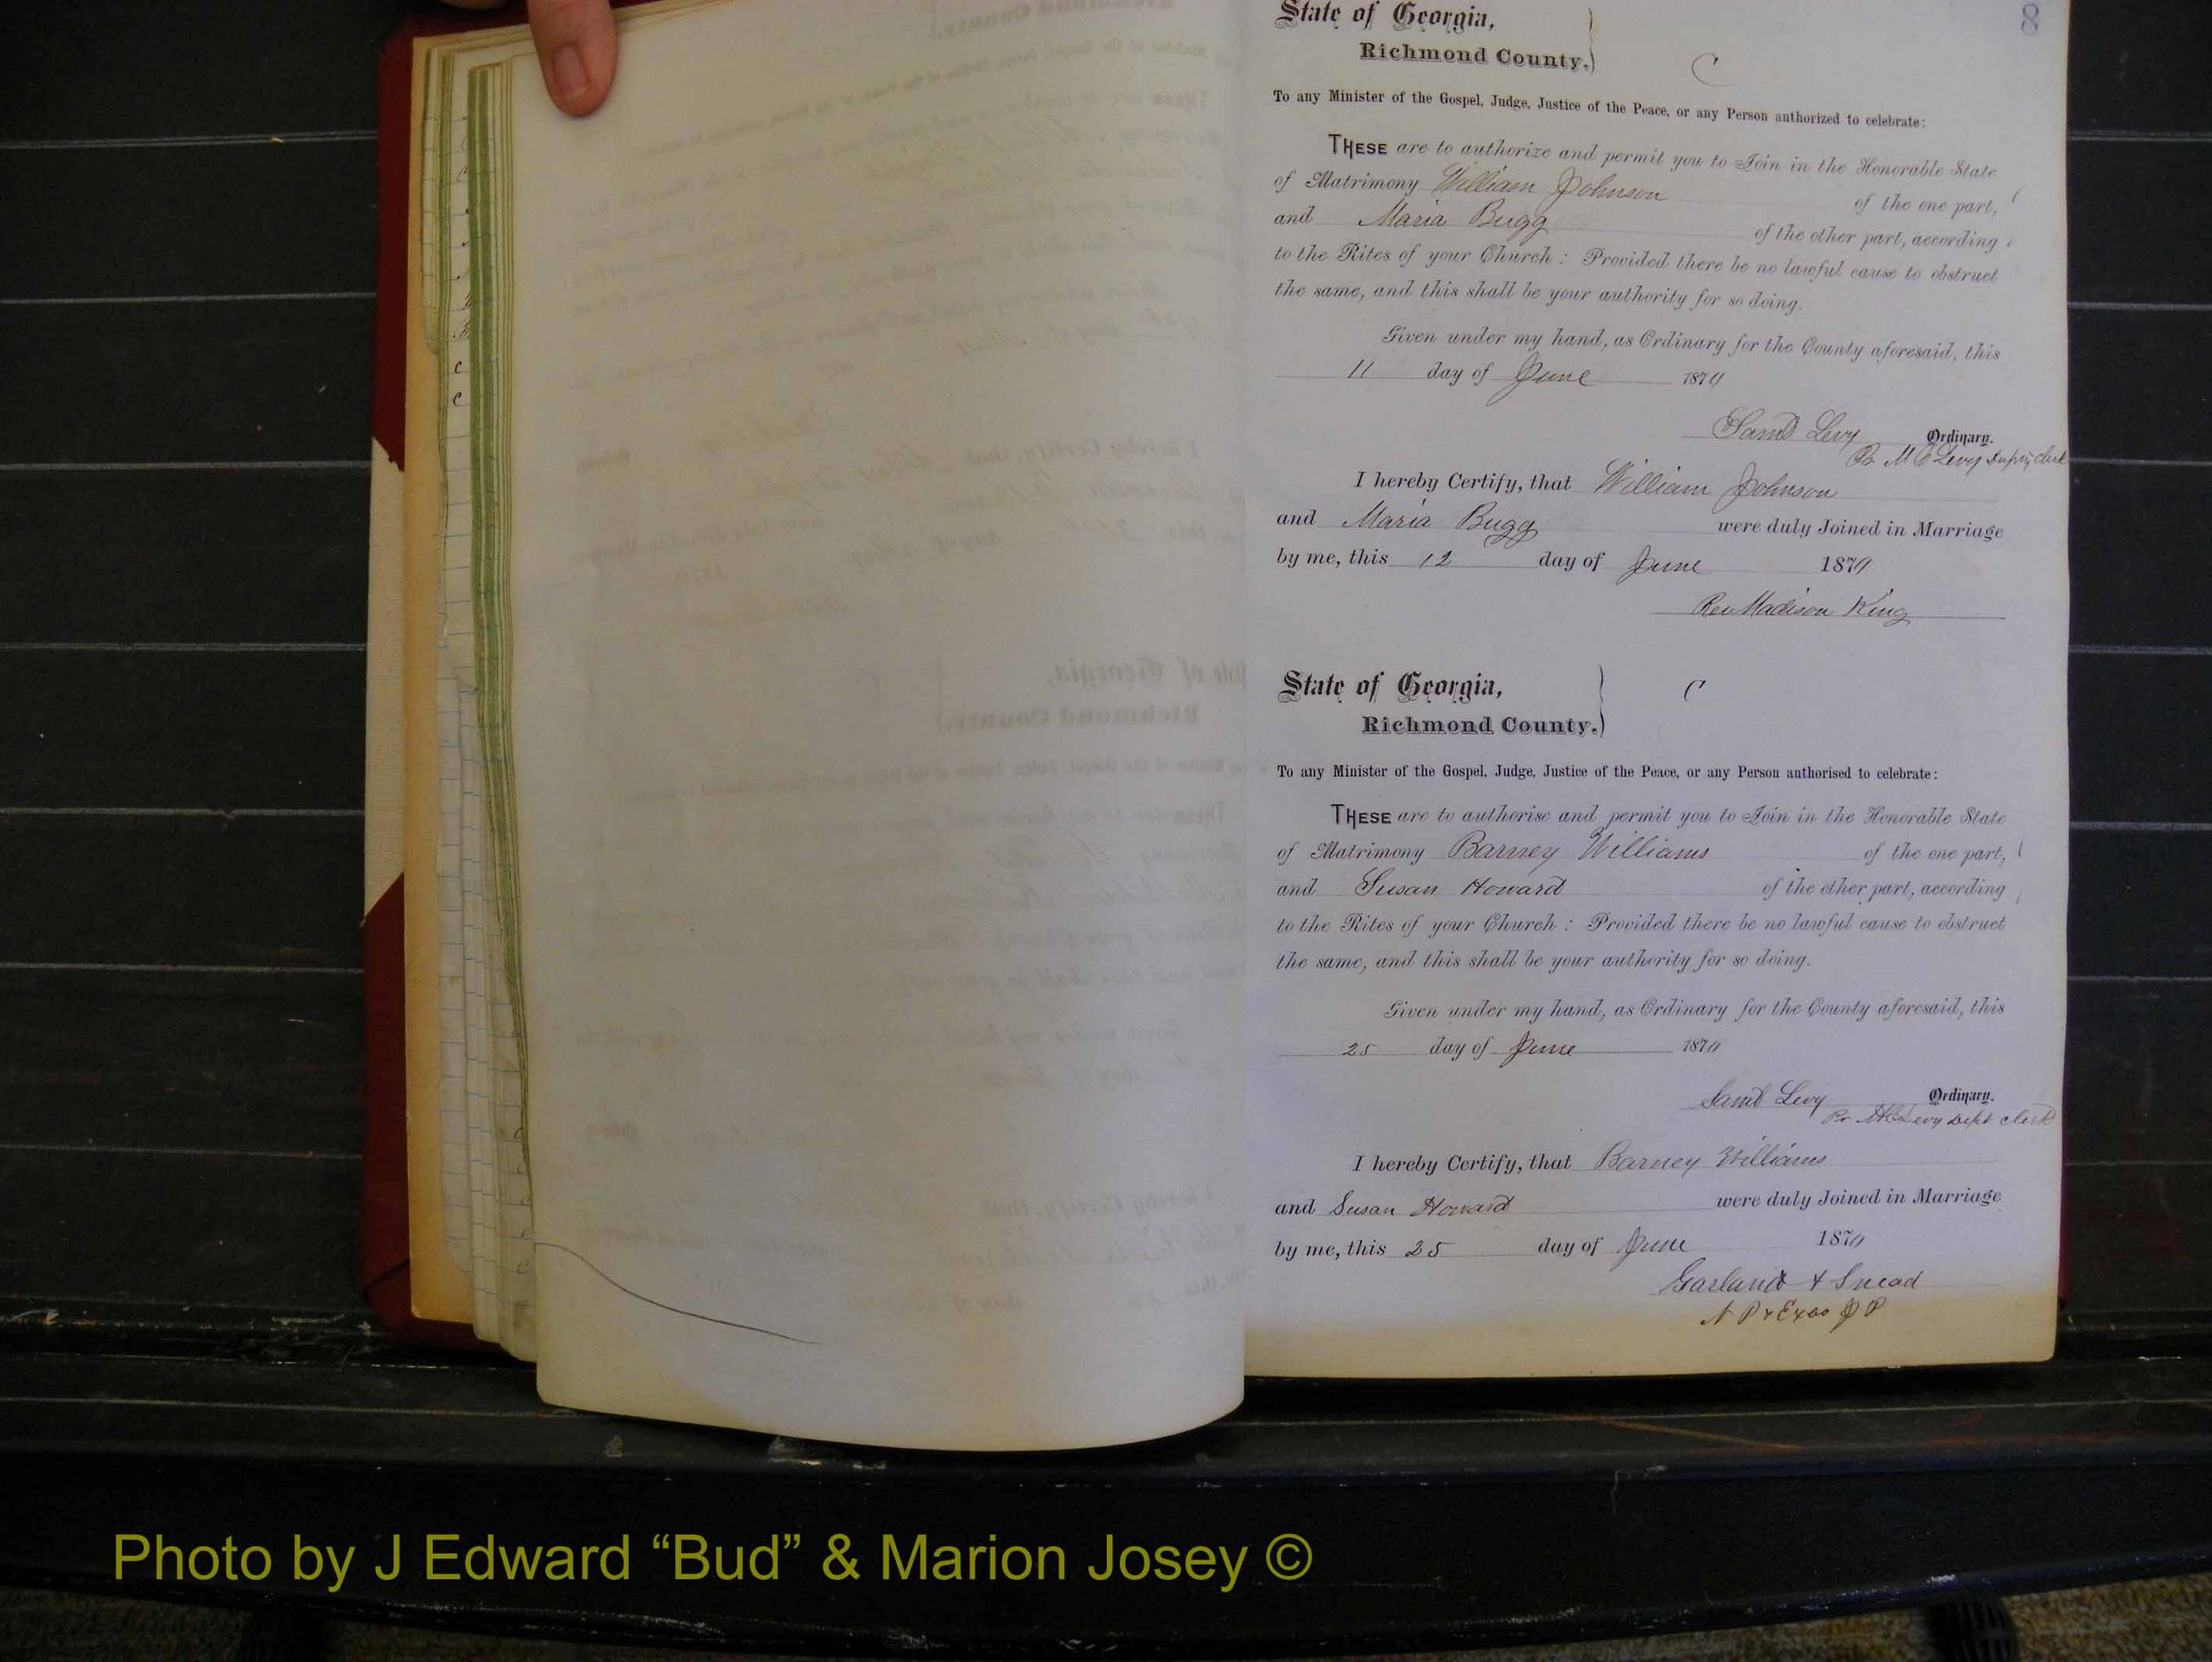 8
State of Georgia,
Richmond County.
C
To any Minister of the Gospel, Judge, Justice of the Peace, or any Person authorized to celebrate:
THESE are to authorize and permit you to Join in the Honorable State
of Matrimony William Johnson of the one part,
and Maria Bugg of the other part, according
to the Rites of your Church: Provided there be no lawful cause to obstruct
the same, and this shall be your authority for so doing.
Given under my hand, as Ordinary for the County aforesaid, this
11 day of June 1879
Saml Levy Ordinary.
Pr Levy clerk
I hereby Certify, that William Johnson
and Maria Bugg were duly Joined in Marriage
by me, this 12 day of June 1879
Rev Madison King
State of Georgia,
Richmond County.
C
To any Minister of the Gospel, Judge, Justice of the Peace, or any Person authorised to celebrate:
THESE are to authorise and permit you to Join in the Honorable State
of Matrimony Barney Williams of the one part,
and Susan Howard of the other part, according
to the Rites of your Church: Provided there be no lawful cause to obstruct
the same, and this shall be your authority for so doing.
Given under my hand, as Ordinary for the County aforesaid, this
25 day of June 1879
Saml Levy Ordinary.
Pr Levy Dept clerk
I hereby Certify, that Barney Williams
and Susan Howard were duly Joined in Marriage
by me, this 25 day of June 1879
Garland Snead
N P & Exoo J P
Photo by J Edward “Bud” & Marion Josey ©